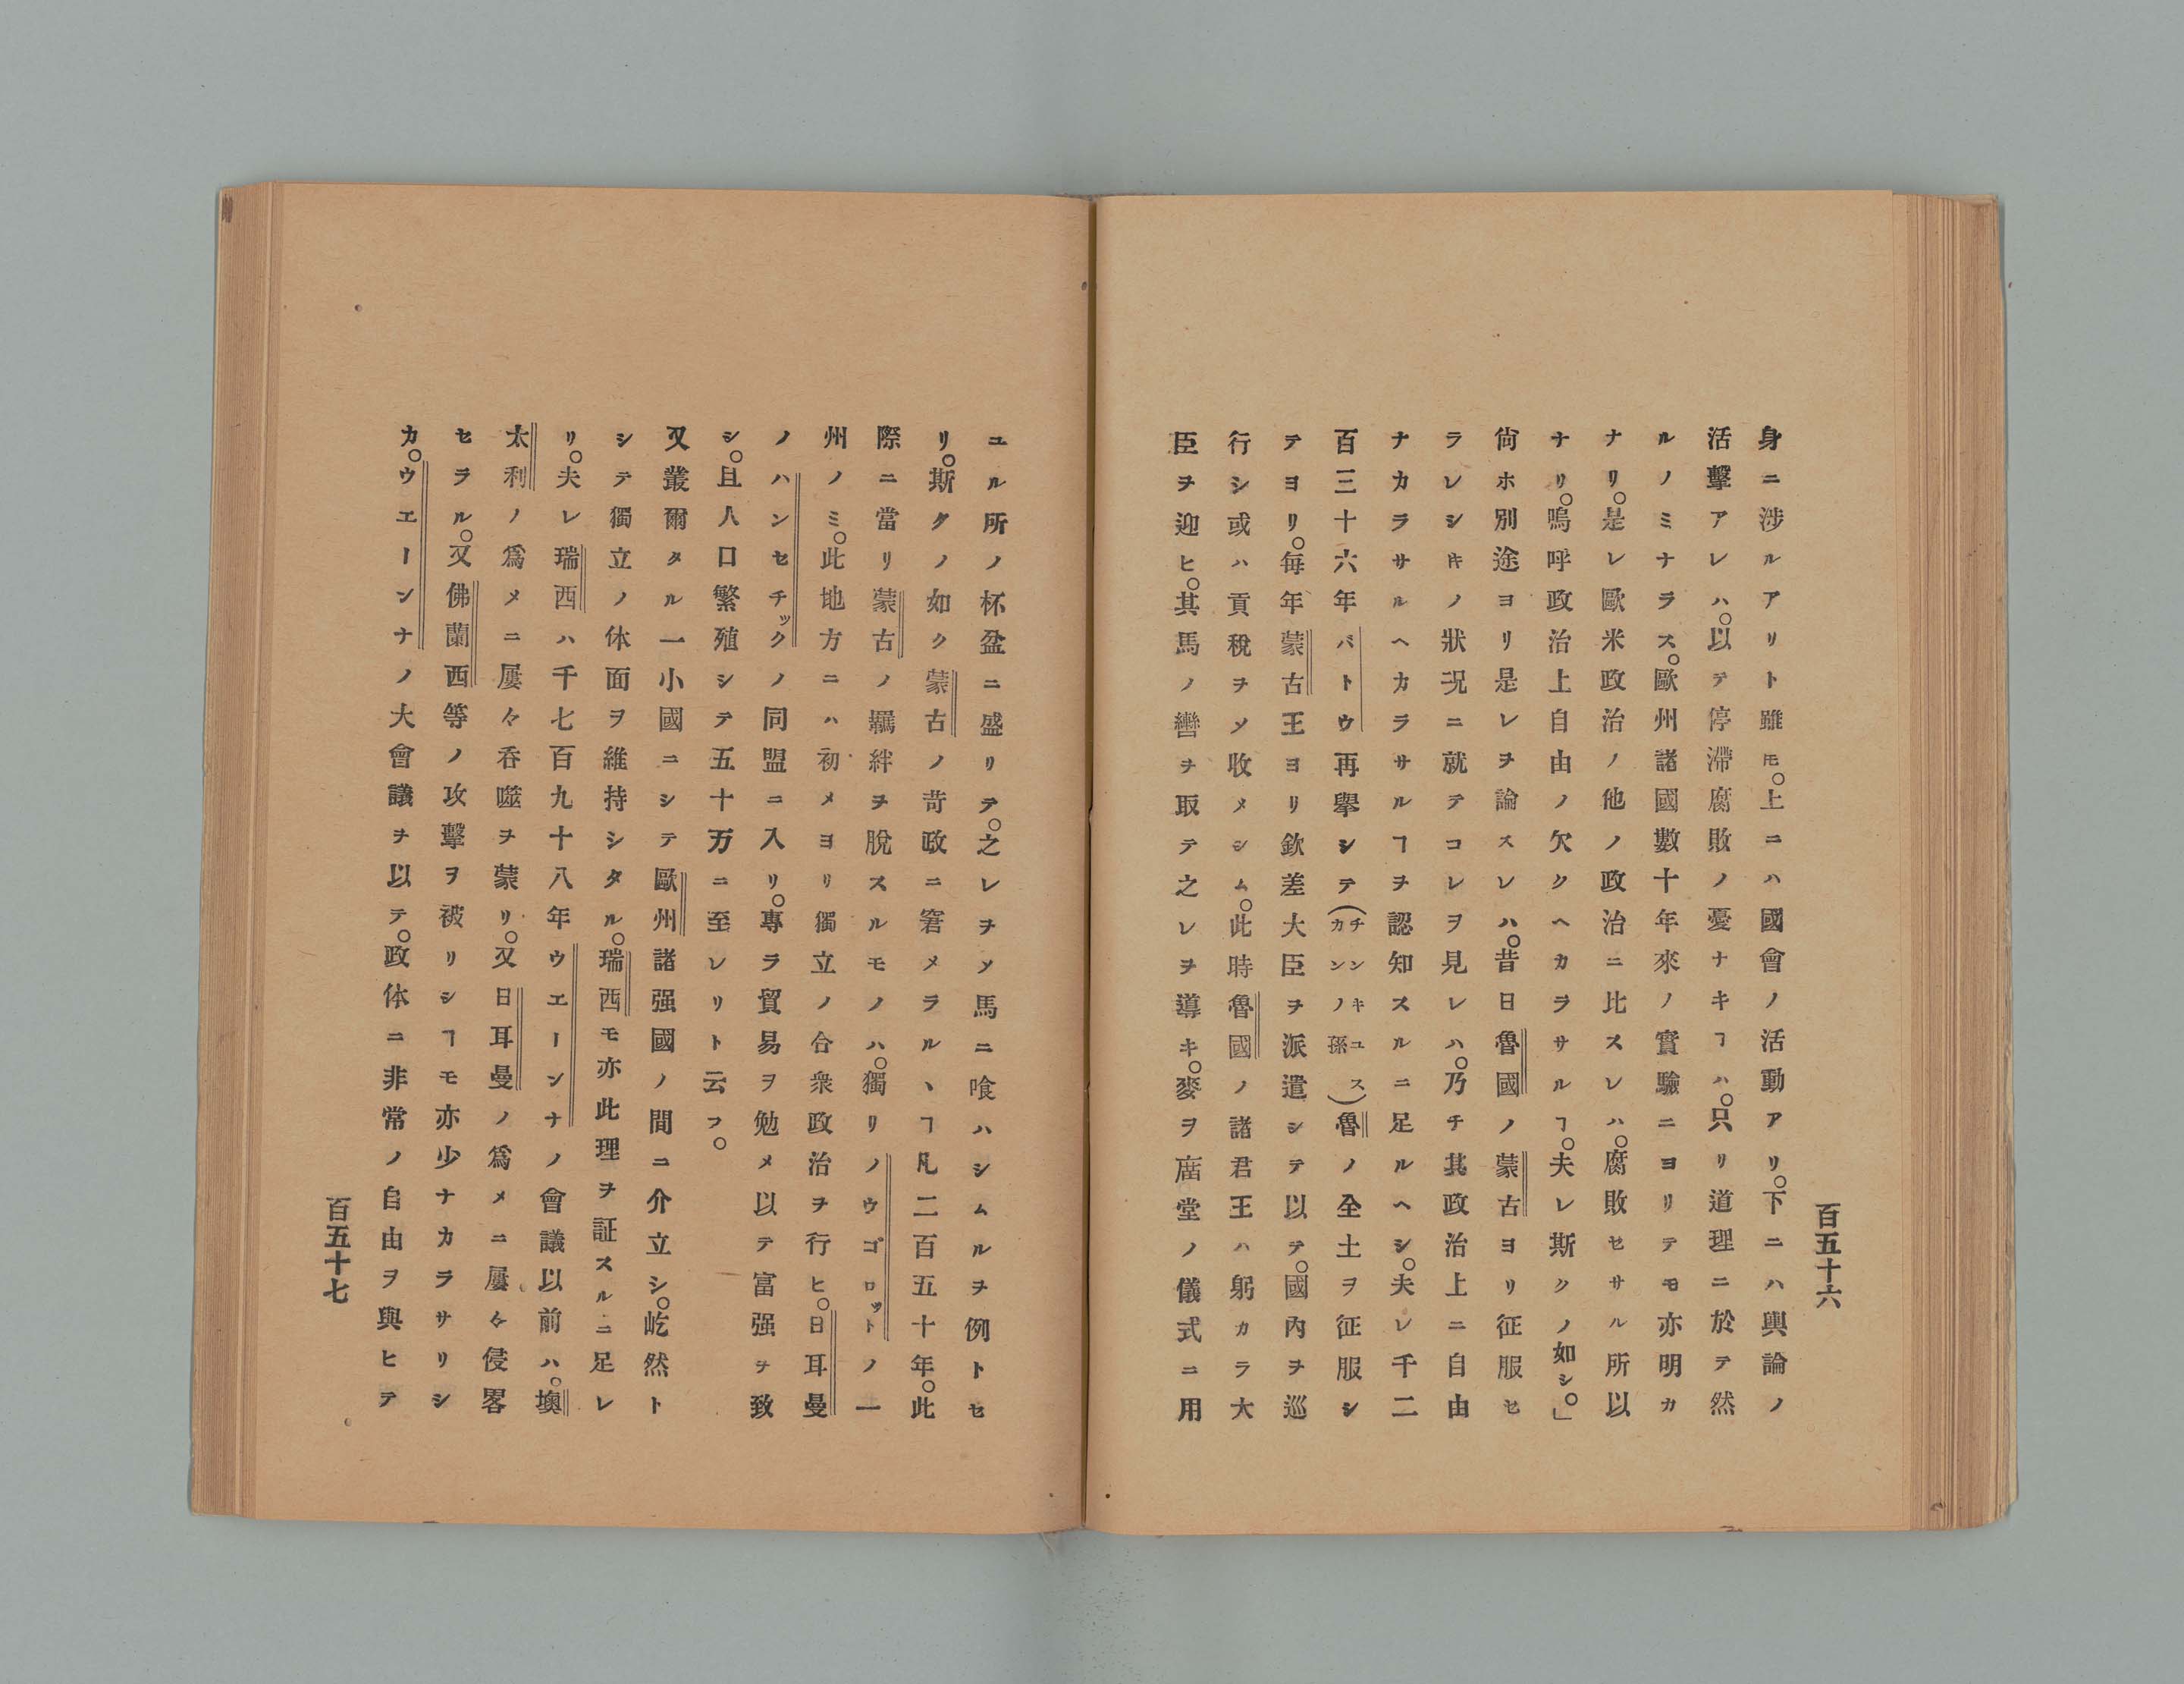 百五十六
身ニ渉ルアリト雖𪜈。上ニハ國會ノ活動アリ。下ニハ輿論ノ
活擊アレハ。以テ停滯腐敗ノ憂ナキヿハ。只リ道理ニ於テ然
ルノミナラス。歐州諸國數十年來ノ實驗ニヨリテモ亦明カ
ナリ。是レ歐米政治ノ他ノ政治ニ比スレハ。腐敗セサル所以
ナリ。嗚呼政治上自由ノ欠クヘカラサルヿ。夫レ斯クノ如シ。」
尙ホ別途ヨリ是レヲ論スレハ。昔日魯國ノ蒙古ヨリ征服セ
ラレシキノ狀況ニ就テコレヲ見レハ。乃チ其政治上ニ自由
ナカラサルヘカラサルヿヲ認知スルニ足ルヘシ。夫レ千二
百三十六年バトウ再擧シテ(チンキユスカンノ孫)魯ノ全土ヲ征服シ
テヨリ。每年蒙古王ヨリ欽差大臣ヲ派遣シテ以テ。國內ヲ巡
行シ或ハ貢稅ヲ〆收メシム。此時魯國ノ諸君王ハ躬カラ大
臣ヲ迎ヒ。其馬ノ轡ヲ取テ之レヲ導キ。麥ヲ庿堂ノ儀式ニ用
ユル所ノ杯盆ニ盛リテ。之レヲ〆馬ニ喰ハシムルヲ例トセ
リ。斯クノ如ク蒙古ノ苛政ニ窘メラルヽヿ凡二百五十年。此
際ニ當リ蒙古ノ羈絆ヲ脫スルモノハ。獨リノウゴロットノ一
州ノミ。此地方ニハ初メヨリ獨立ノ合衆政治ヲ行ヒ。日耳曼
ノハンセチックノ同盟ニ入リ。專ラ貿易ヲ勉メ以テ富强ヲ致
シ。且人口繁殖シテ五十万ニ至レリト云フ。
又叢爾タル一小國ニシテ歐州諸强國ノ間ニ介立シ。屹然ト
シテ獨立ノ体面ヲ維持シタル。瑞西モ亦此理ヲ証スルニ足レ
リ。夫レ瑞西ハ千七百九十八年ウエーンナノ會議以前ハ。墺
太利ノ爲メニ屢々呑噬ヲ蒙リ。又日耳曼ノ爲メニ屢々侵畧
セラル。又佛蘭西等ノ攻擊ヲ被リシヿモ亦少ナカラサリシ
カ。ウエーンナノ大會議ヲ以テ。政体ニ非常ノ自由ヲ與ヒテ
百五十七